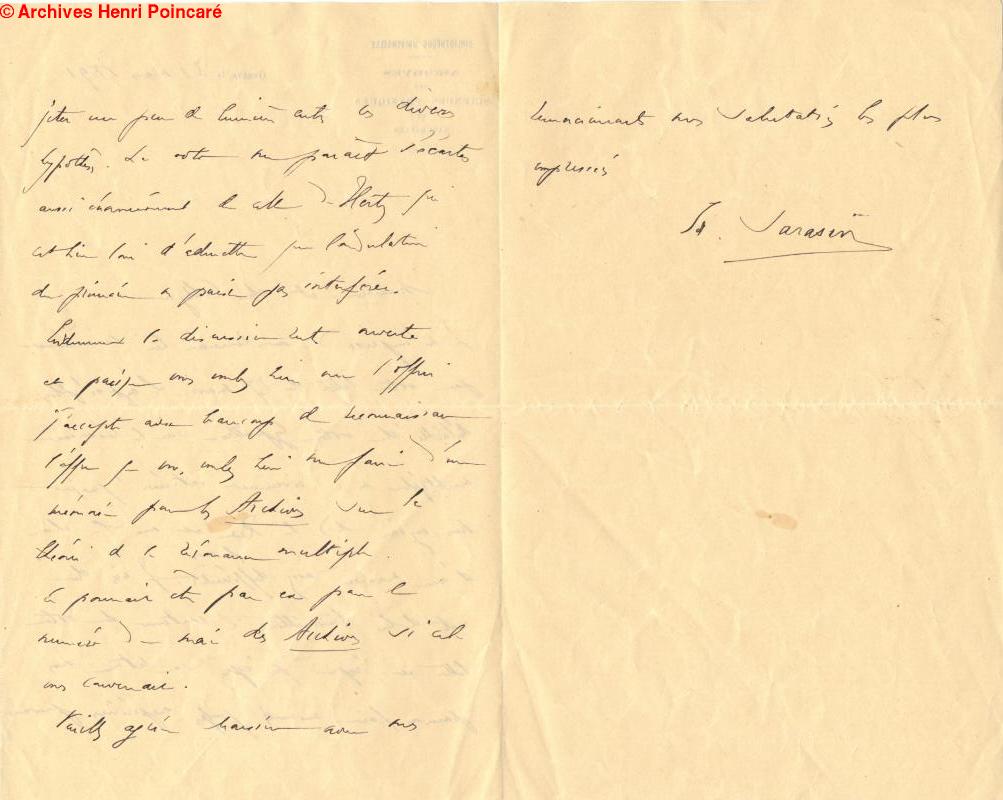 © Archives Henri Poincaré
jeter un peu de lumière entre ces divers
hypothèses. La votre me parait s'écarter
aussi énormément de celle de Hertz qui
est bien loin d'admettre que l'ondulation
du primaire ne puisse pas interférer.
la discussion est ouverte
et puisque vous voulez bien me l'offrir
j'accepte avec beaucoup de reconnaissance
l'offre que vous voulez bien me faire d'un
mémoire pour les Archives sur la
théorie de la résonance multiple.
Ce pourrait être par ex pour le
numéro de mai des Archives si cela
vous convenait.
Veuillez agréer Monsieur avec mes
remerciements mes salutations les plus
empressées
Ed. Sarasin